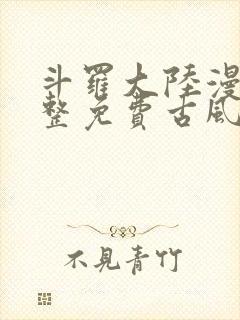 斗羅大陸漫
整免費古風
不見青竹